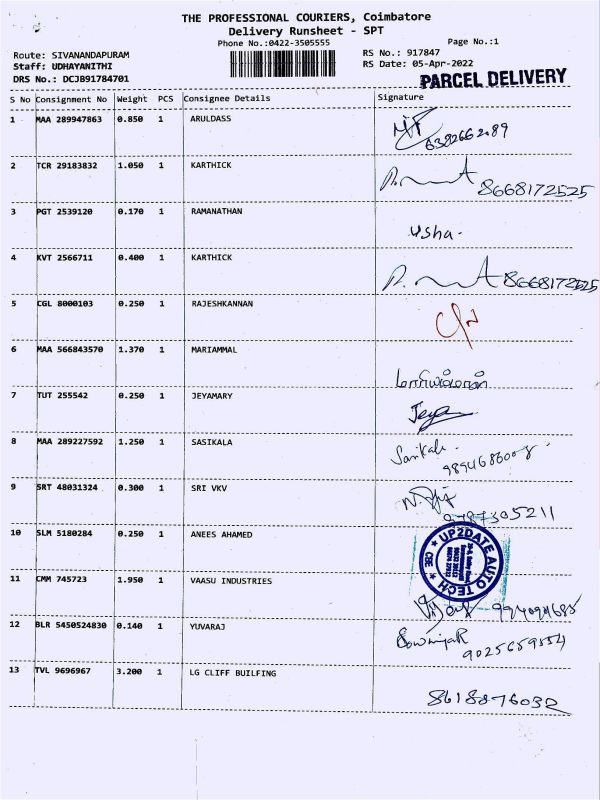 THE PROFESSIONAL COURIERS, Coimbatore
Delivery Runsheet - SPT
Phone No.:0422-3505555
Page No.:1
Route: SIVANANDAPURAM
RS No.: 917847
Staff: UDHAYANITHI
RS Date: 05-Apr-2022
DRS No.: DCJB91784701
PARCEL DELIVERY
S No Consignment No Weight PCS Consignee Details Signature
1 MAA 289947863 0.850 1 ARULDASS
6382662089
2 TCR 29183832 1.050 1 KARTHICK 8668172525
3 PGT 2539120 0.170 1 RAMANATHAN
Usha.
4 KVT 2566711 0.400 1 KARTHICK 8668172525
5 CGL 8000103 0.250 1 RAJESHKANNAN
6 MAA 566843570 1.370 1 MARIAMMAL
மாரியம்மாள்
7 TUT 255542 0.250 1 JEYAMARY
Jeya
8 MAA 289227592 1.250 1 SASIKALA
Sasikala
9 SRT 48031324 0.300 1 SRI VKV
9787305211
10 SLM 5180284 0.250 1 ANEES AHAMED
UP2DATE AUTO TECH
CBE
11 CMM 745723 1.950 1 VAASU INDUSTRIES
12 BLR 5450524830 0.140 1 YUVARAJ
Sowmiya R
9025659554
13 TVL 9696967 3.200 1 LG CLIFF BUILFING
8618876032